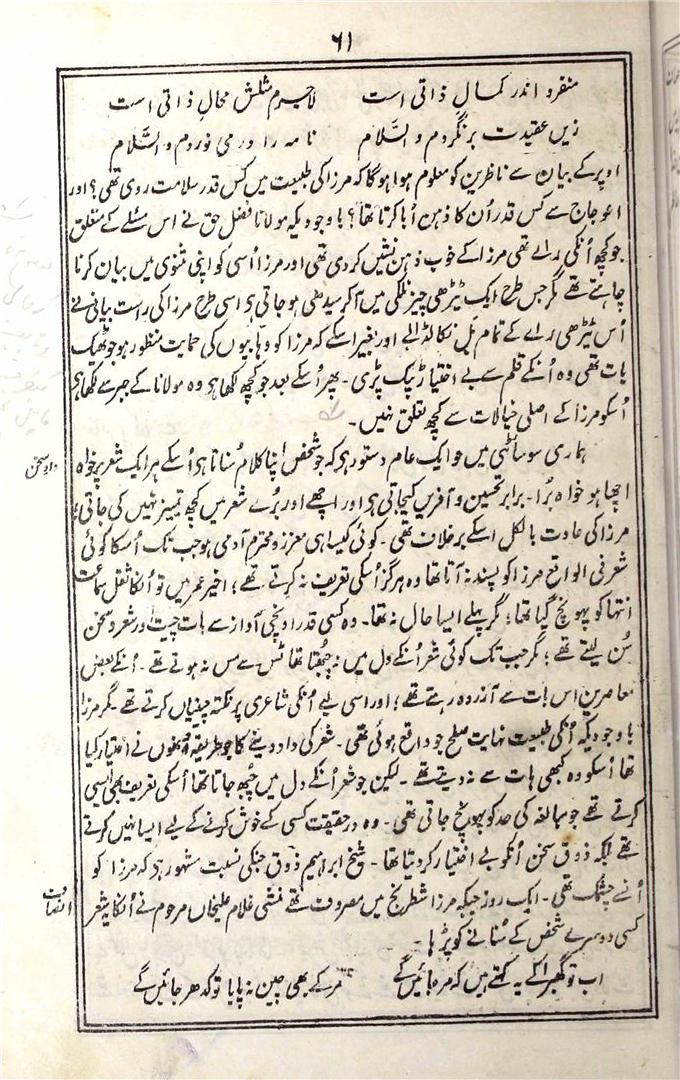 ٦١
منفرد اندر کمال ذاتی است لاجرم مثلش محال ذاتی است
زیں عقیدت برنگردم والسّلام نامہ را در می نوردم والسّلام
اوپر کے بیان سے ناظرین کو معلوم ہوا ہوگا کہ مرزا کی طبیعت میں کس قدر سلامت روی تھی؟ اور
اعوجاج سے کس قدر اُن کا ذہن اَبا کرتا تھا؟ باوجودیکہ مولانا فضل حق نے اس مسٔلے کے متعلق
جو کچھ اُنکی راے تھی مرزا کے خوب ذہن نشیں کر دی تھی اور مرزا اُسی کو اپنی مثنوی میں بیان کرنا
چاہتے تھے مگر جس طرح ایک ٹیڑھی چیز نلکی میں آکر سیدھی ہو جاتی ہی اسی طرح مرزا کی راست بیانی نے
اُس ٹیڑھی راے کے تمام بل نکالڈالے اور بغیر اسکے کہ مرزا کو وہابیوں کی حمایت منظور ہو جو ٹھیک
بات تھی وہ اُنکے قلم سے بے اختیار ٹپک پڑی۔ پھر اُسکے بعد جو کچھ لکھا ہی وہ مولانا کے جبر سے لکھا ہی
اُسکو مرزا کے اصلی خیالات سے کچھ تعلق نہیں۔
ہماری سوسائٹی میں جو ایک عام دستور ہی کہ جو شخص اپنا کلام سُناتا ہی اُسکے ہر ایک شعر پر خواہ
داد سخن
اچھا ہو خواہ بُرا۔ برابر تحسین و آفریں کیجاتی ہی اور اچھے اور بُرے شعر میں کچھ تمیز نہیں کی جاتی؛
مرزا کی عادت بالکل اسکے برخلاف تھی۔ کوئی کیسا ہی معزز و محترم آدمی ہو جب تک اُسکا کوئی
شعر فی الواقع مرزا کو پسند نہ آتا تھا وہ ہرگز اُسکی تعریف نہ کرتے تھے؛ اخیر عمر میں تو اُنکا ثقل سماعت
انتہا کو پہونچ گیا تھا؛ مگر پہلے ایسا حال نہ تھا۔ وہ کسی قدر اونچی آواز سے بات چیت اور شعر و سخن
سُن لیتے تھے؛ مگر جب تک کوئی شعر اُنکے دل میں نہ چُبھتا تھا ٹس سے مس نہ ہوتے تھے۔ اُنکے بعض
معاصرین اس بات سے آزردہ رہتے تھے؛ اور اسی لیے اُنکی شاعری پر نکتہ چینیاں کرتے تھے۔ مگر مرزا
باوجودیکہ اُنکی طبیعت نہایت صلح جو واقع ہوئی تھی۔ شعر کی داد دینے کا جو طریقہ اُنھوں نے اختیار کیا
تھا اُسکو وہ کبھی ہات سے نہ دیتے تھے۔ لیکن جو شعر اُنکے دل میں چُبھ جاتا تھا اُسکی تعریف بھی ایسی
کرتے تھے جو مبالغہ کی حد کو پہونچ جاتی تھی۔ وہ درحقیقت کسی کے خوش کرنے کے لیے ایسا نہیں کرتے
تھے بلکہ ذوق سخن اُنکو بے اختیار کر دیتا تھا۔ شیخ ابراہیم ذوق جنکی نسبت مشہور ہی کہ مرزا کو
اُنسے چشمک تھی۔ ایک روز جبکہ مرزا شطرنج میں مصروف تھے منشی غلام علیخاں مرحوم نے اُنکا یہ شعر
انصاف
کسی دوسرے شخص کے سُنانے کو پڑہا۔
اب تو گھبرا کے یہ کہتے ہیں کہ مر جائیں گے مر کے بھی چین نہ پایا تو کدھر جائیں گے